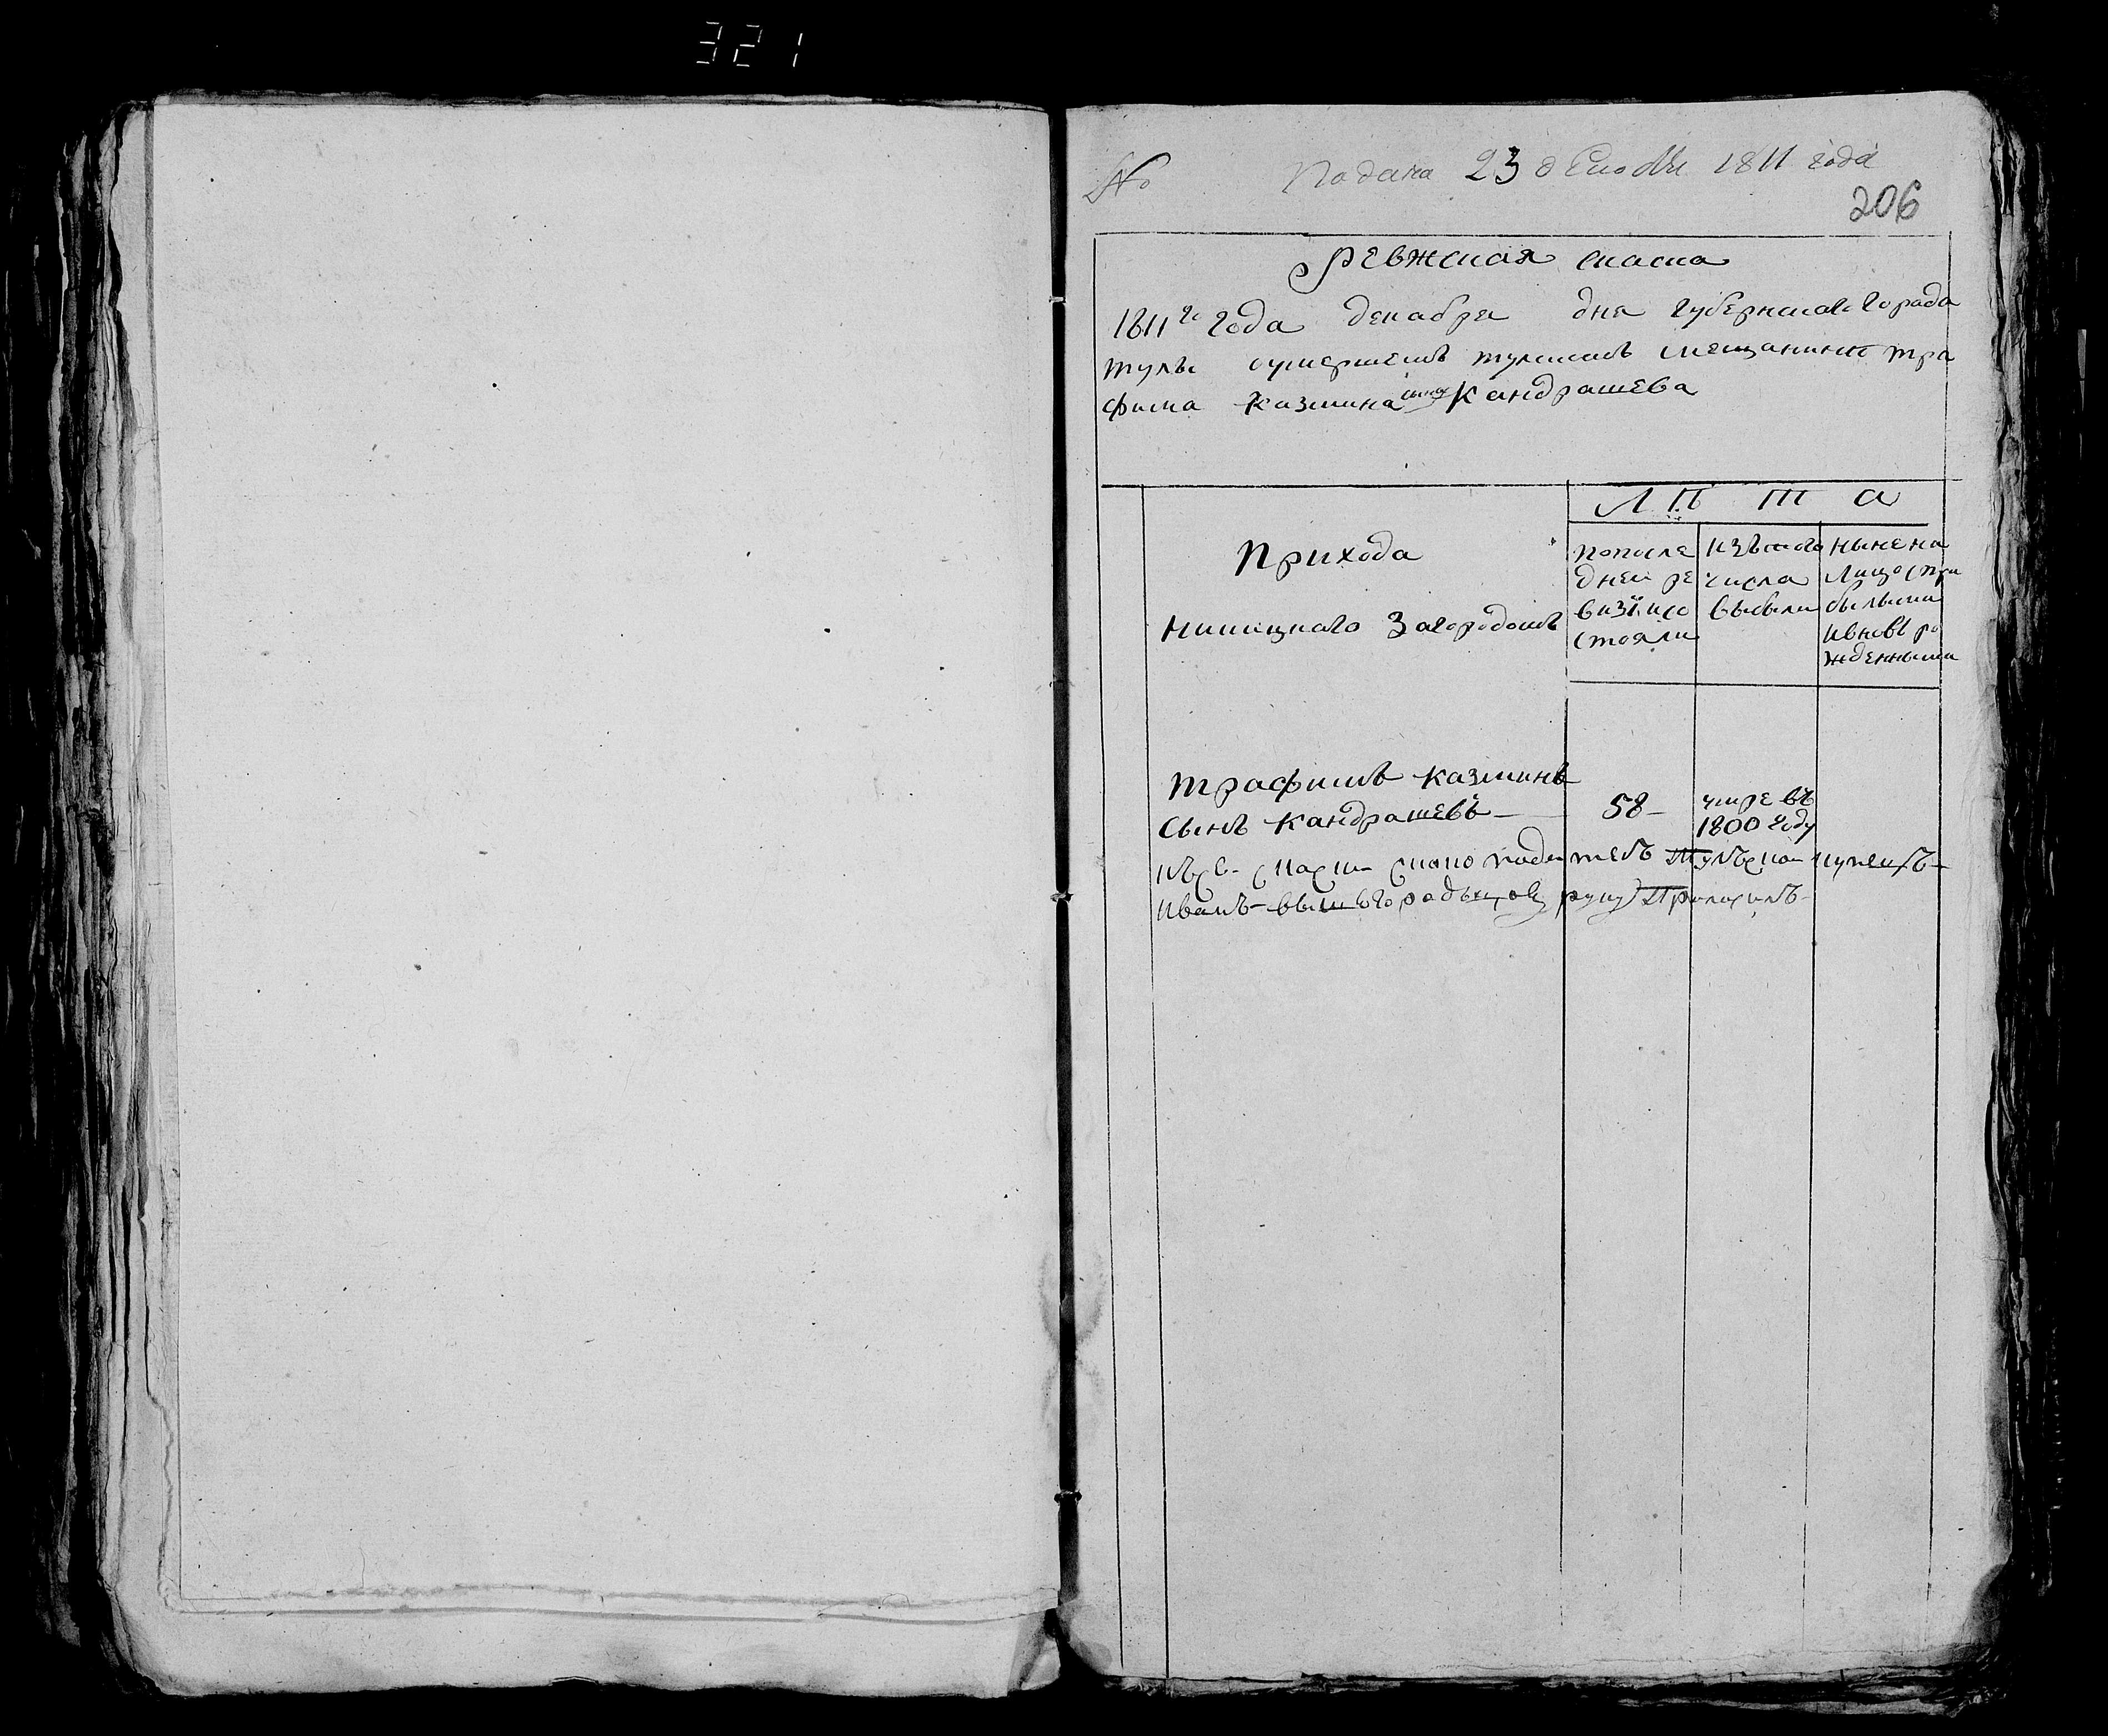 321
№ Подана 23 декабря 1811 года
206
Ревжская скаска
1811го года декабря дня губернскаго города
тулы о умершемъ тулскомъ мещанине тра
фима Казмина сына Кандрашева
Л Ѣ Т А
Прихода
Никицкаго Загородомъ
попосле
дней ре
визїи со
стояли
изътого
числа
выбыли
ныне на
лицо спри
былыми
ивновь ро
жденными
трафимъ казминъ
сынъ кандрашевъ 58
умре въ
1800 году
късе скаски податель тулской купецъ
Иванъ вышегородцовъ руку приложилъ